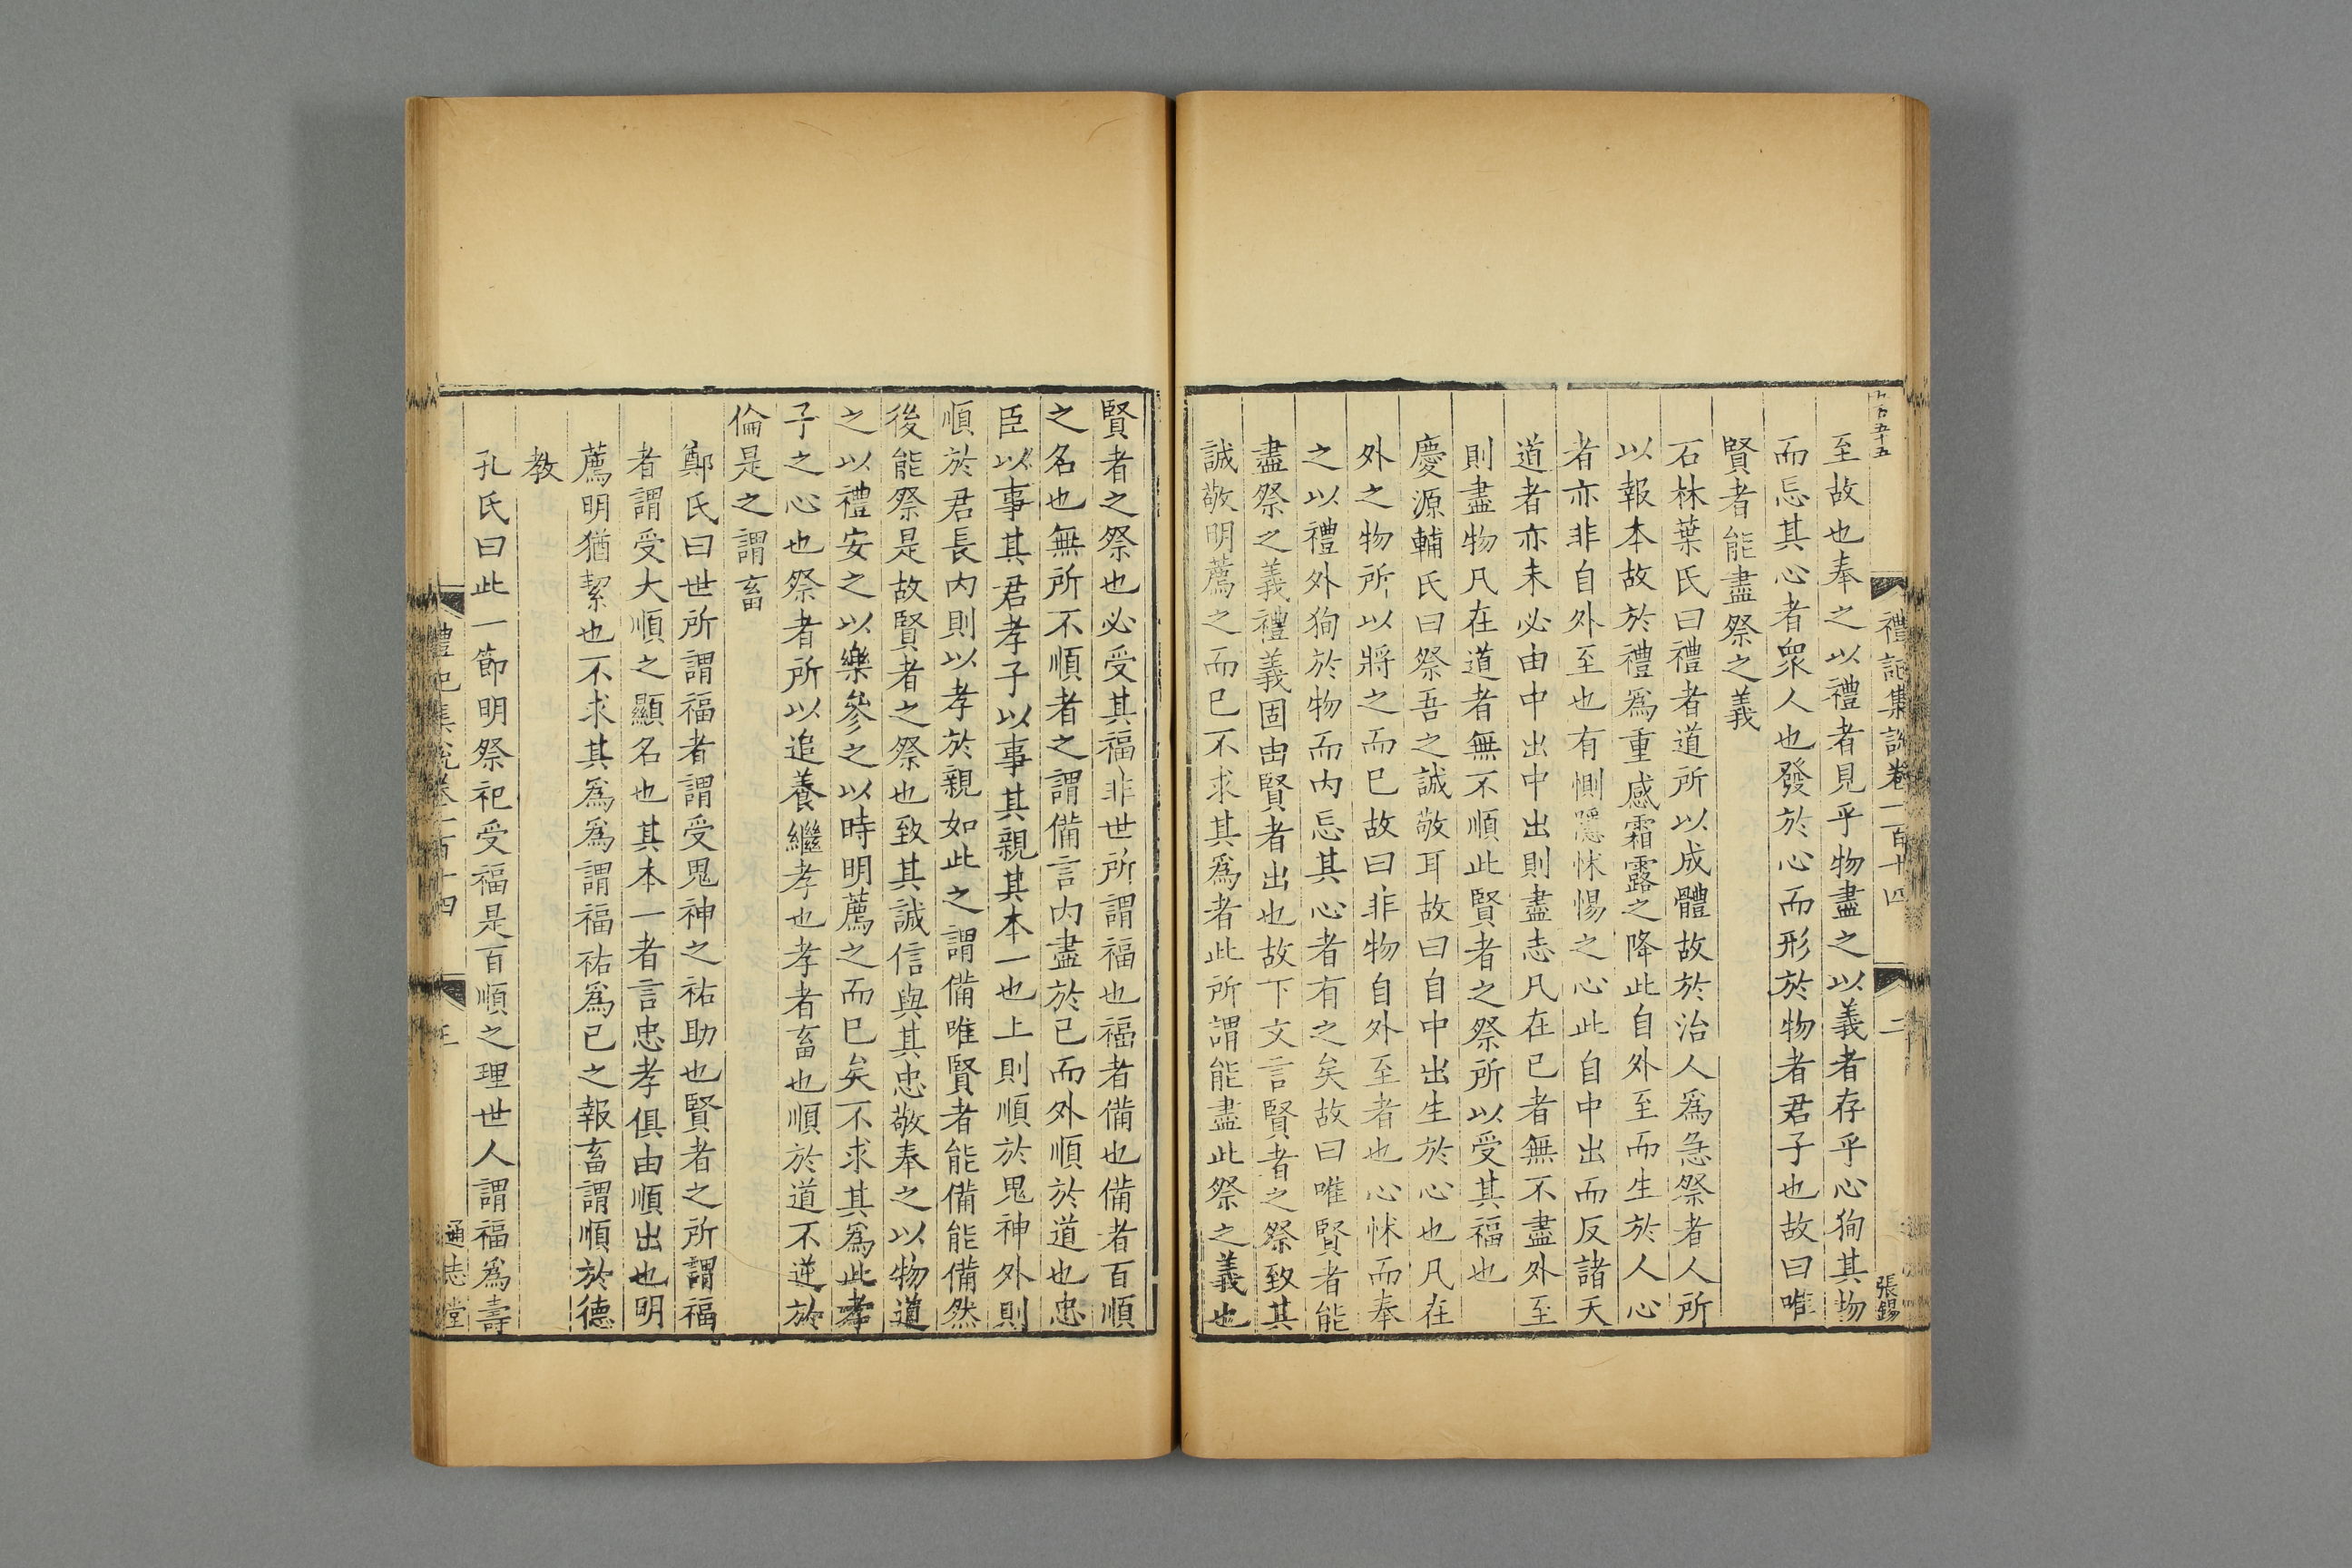 禮記集說卷一百十四
二
張錫
至故也奉之以禮者見乎物盡之以義者存乎心狥其物
而忘其心者衆人也發於心而形於物者君子也故曰唯
賢者能盡祭之義
石林葉氏曰禮者道所以成體故於治人爲急祭者人所
以報本故於禮爲重感霜露之降此自外至而生於人心
者亦非自外至也有惻隱怵惕之心此自中出而反諸天
道者亦未必由中出中出則盡志凡在已者無不盡外至
則盡物凡在道者無不順此賢者之祭所以受其福也
慶源輔氏曰祭吾之誠敬耳故曰自中出生於心也凡在
外之物所以將之而已故曰非物自外至者也心怵而奉
之以禮外狥於物而内忘其心者有之矣故曰唯賢者能
盡祭之義禮義固由賢者出也故下文言賢者之祭致其
誠敬明薦之而已不求其爲者此所謂能盡此祭之義也
賢者之祭也必受其福非世所謂福也福者備也備者百順
之名也無所不順者之謂備言内盡於已而外順於道也忠
臣以事其君孝子以事其親其本一也上則順於鬼神外則
順於君長内則以孝於親如此之謂備唯賢者能備能備然
後能祭是故賢者之祭也致其誠信與其忠敬奉之以物道
之以禮安之以樂參之以時明薦之而已矣不求其爲此孝
子之心也祭者所以追養繼孝也孝者畜也順於道不逆於
倫是之謂畜
鄭氏曰世所謂福者謂受鬼神之祐助也賢者之所謂福
者謂受大順之顯名也其本一者言忠孝俱由順出也明
薦明猶絜也不求其爲爲謂福祐爲已之報畜謂順於德
教
孔氏曰此一節明祭祀受福是百順之理世人謂福爲壽
禮記集說卷一百十四
通志堂